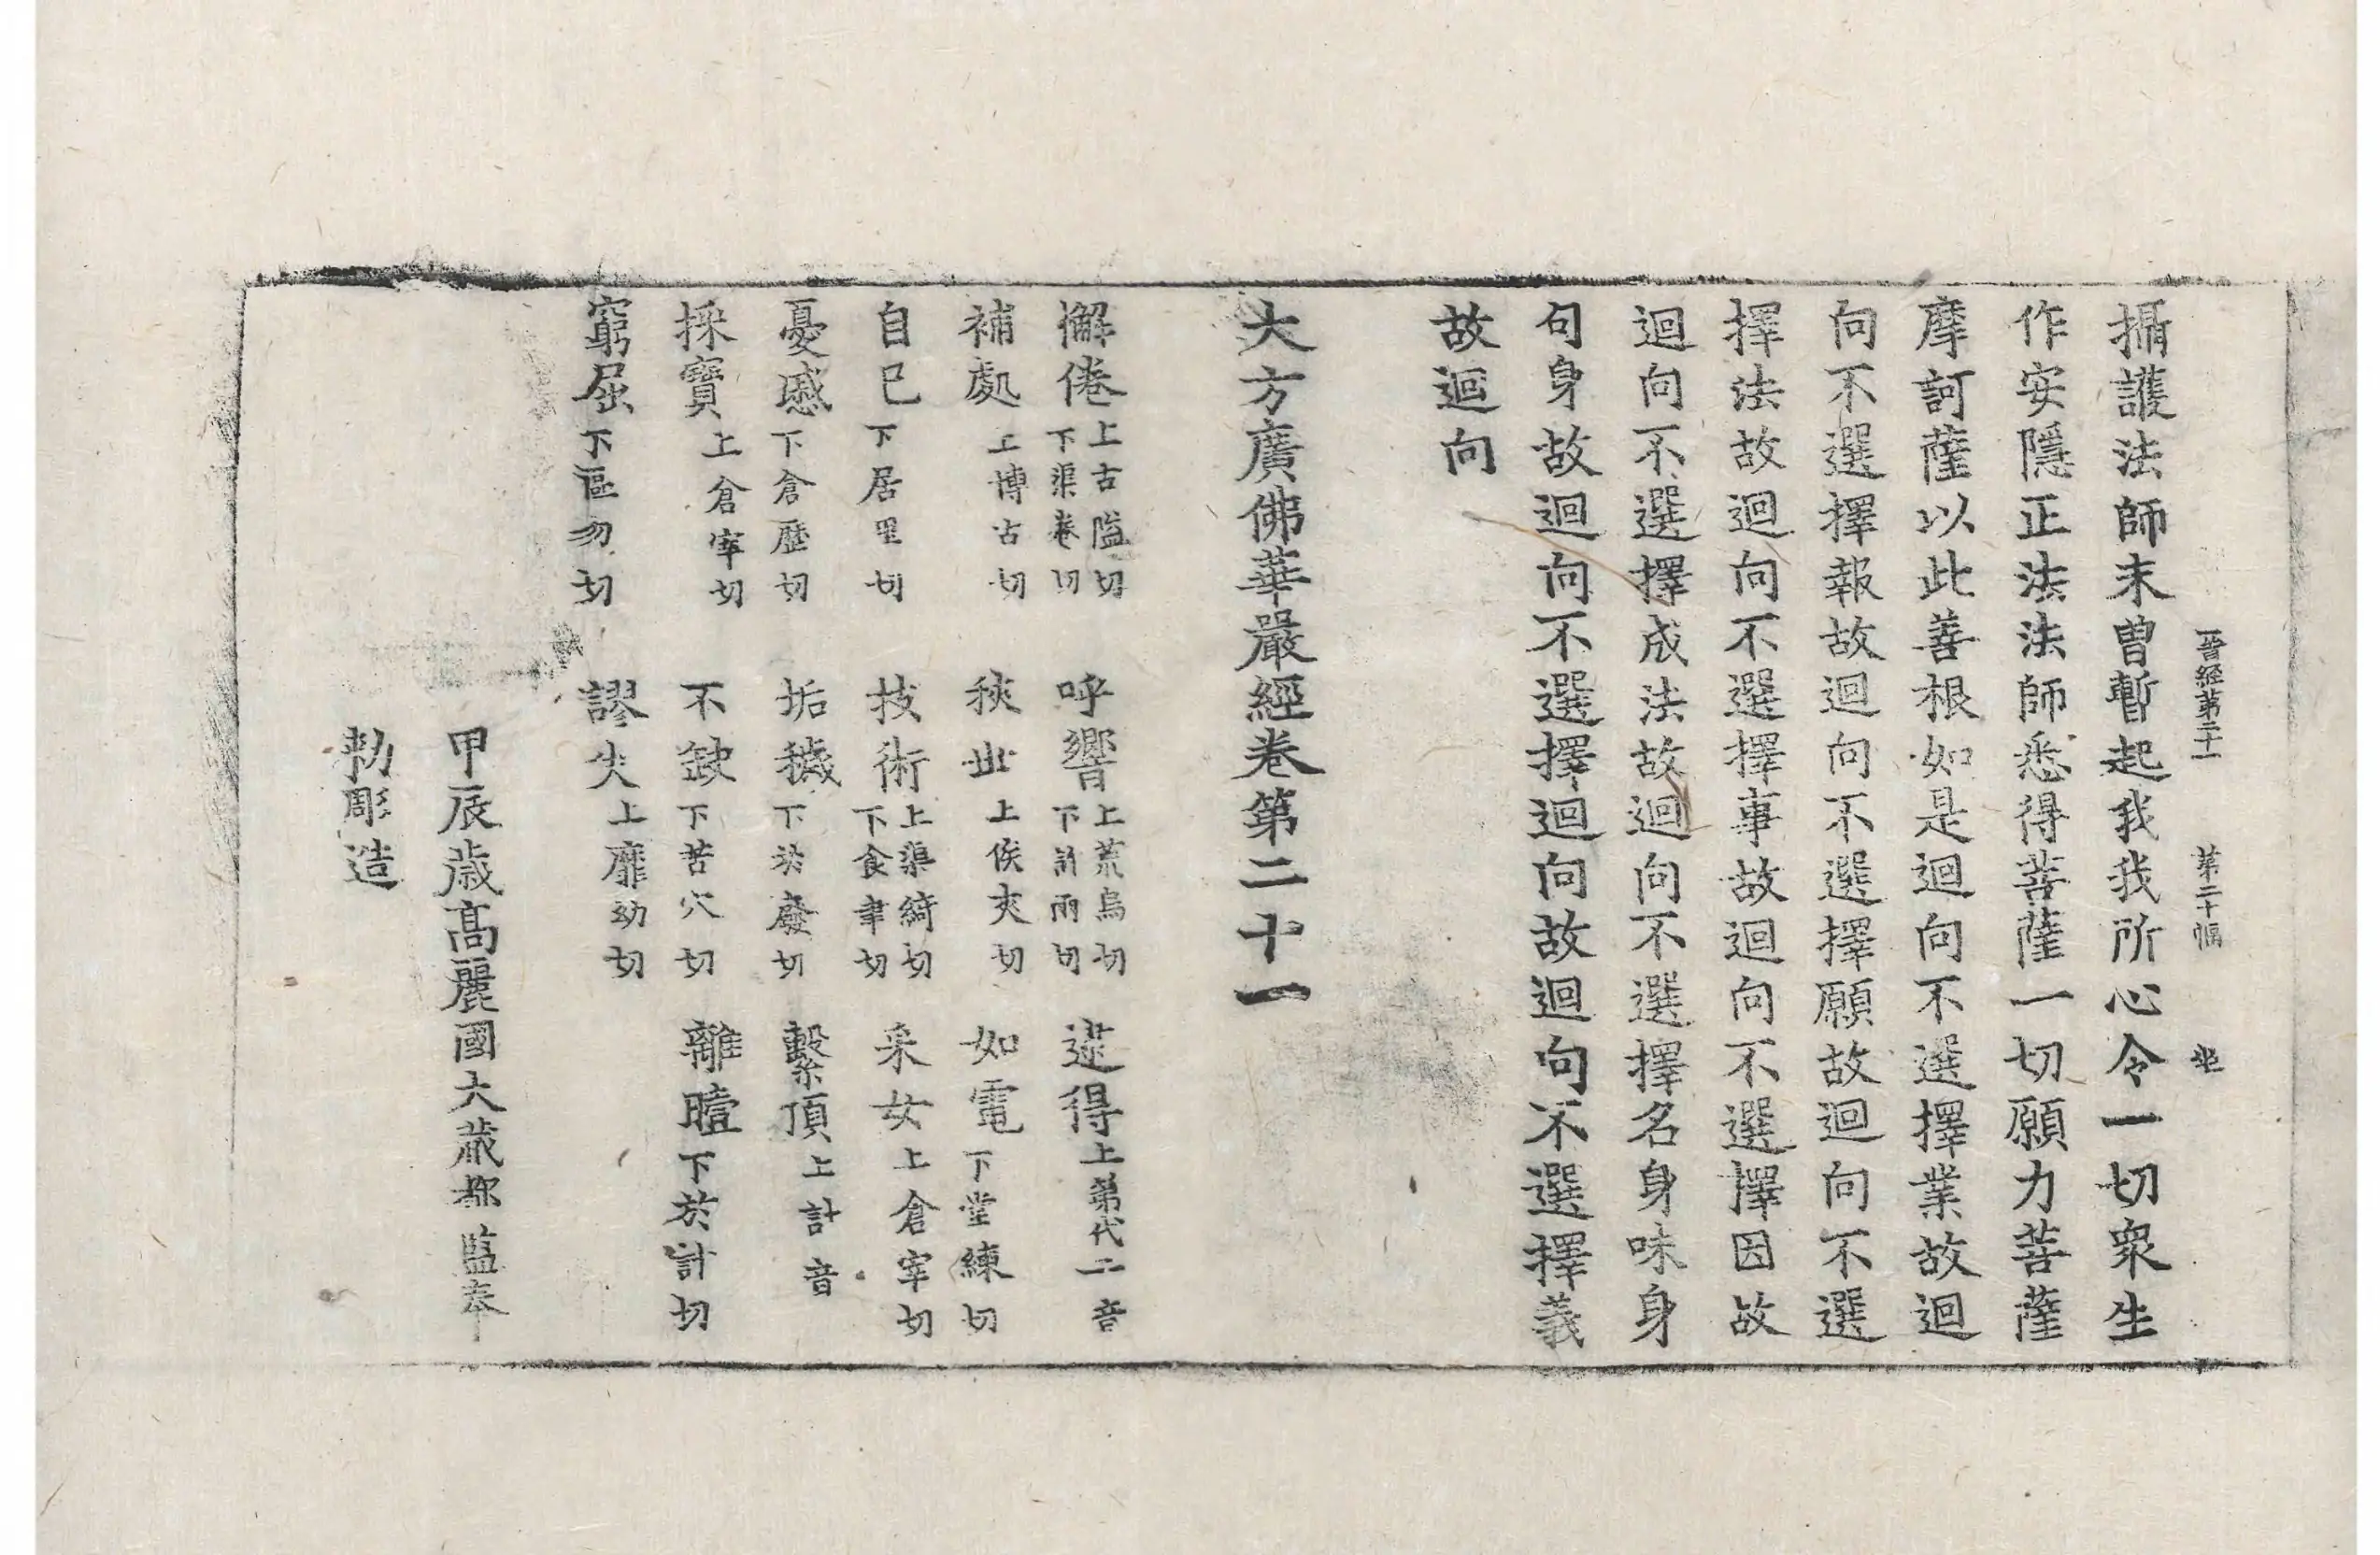 晉經第二十一　第二十幅　坐
攝護法師未曾暫起我我所心令一切衆生
作安隱正法法師悉得菩薩一切願力菩薩
摩訶薩以此善根如是迴向不選擇業故迴
向不選擇報故迴向不選擇願故迴向不選
擇法故迴向不選擇事故迴向不選擇因故
迴向不選擇成法故迴向不選擇名身味身
句身故迴向不選擇迴向故迴句不選擇義
故迴向
大方廣佛華嚴經卷第二十一
懈倦上古隘切下渠卷切　呼響上荒烏切下許兩切　逮得上第代二音
補處上博古切　狹此上侯夾切　如電下堂練切
自已下居里切　技術上渠綺切下食聿切　采女上倉宰切
憂慼下倉歷切　垢穢下於廢切　繫頂上計音
採寶上倉宰切　不缺下苦穴切　離曀下於計切
窮屈下區勿切　謬失上靡幼切
甲辰歲高麗國大藏都監奉
勅彫造